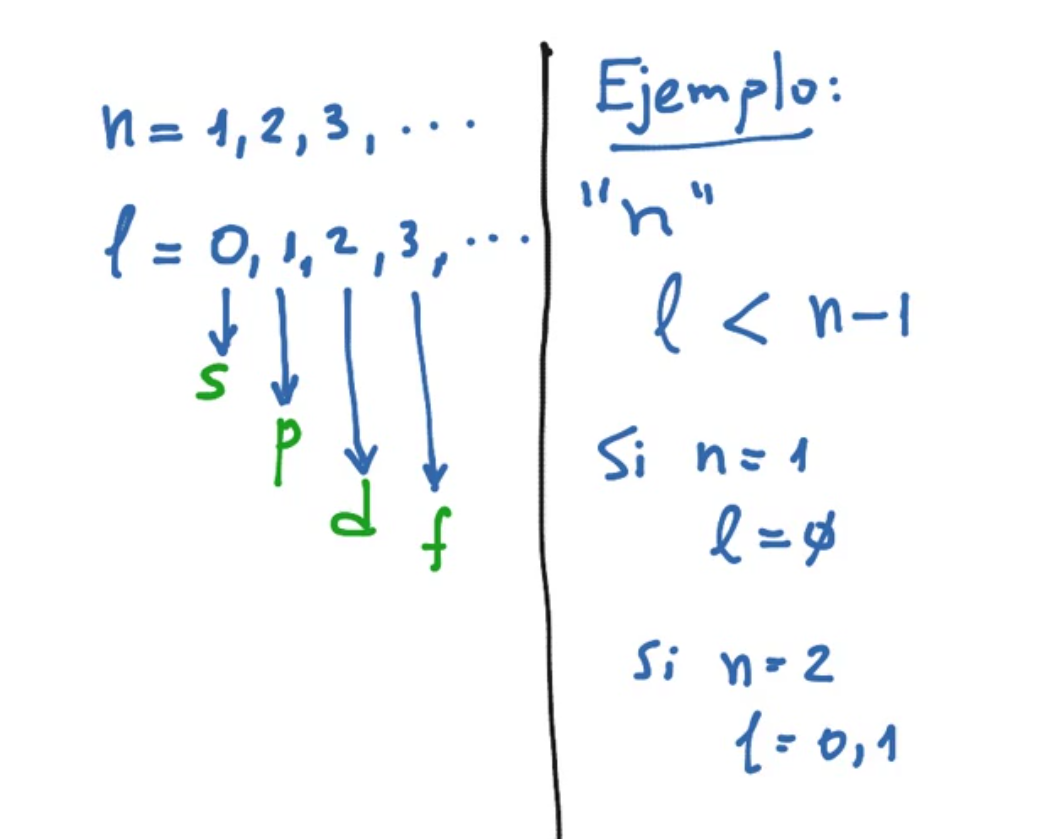 n = 1, 2, 3, ...
l = 0, 1, 2, 3, ...
s
p
d
f
Ejemplo:
"n"
l < n-1
Si n = 1
l = ∅
Si n = 2
l = 0, 1